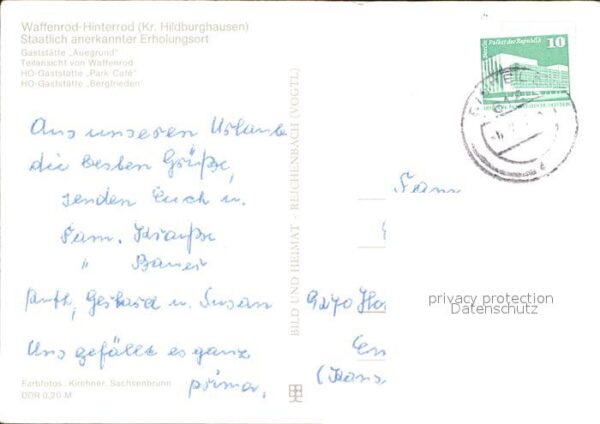 Waffenrod-Hinterrod (Kr. Hildburghausen)
Staatlich anerkannter Erholungsort
Gaststätte „Auegrund"
Teilansicht von Waffenrod
HO-Gaststätte „Park Café"
HO-Gaststätte „Bergfrieden"
Berlin, Palast der Republik
10
Aus unseren Urlaub
die besten Grüße,
senden Euch u.
Fam. Krauße
" Bauer
Ruth, Gerhard u. Susan
Uns gefällt es ganz
prima.
Farbfotos: Kirchner, Sachsenbrunn
DDR 0,20 M
BILD UND HEIMAT - REICHENBACH (VOGTL)
Fam
9270 Ho
privacy protection
Datenschutz